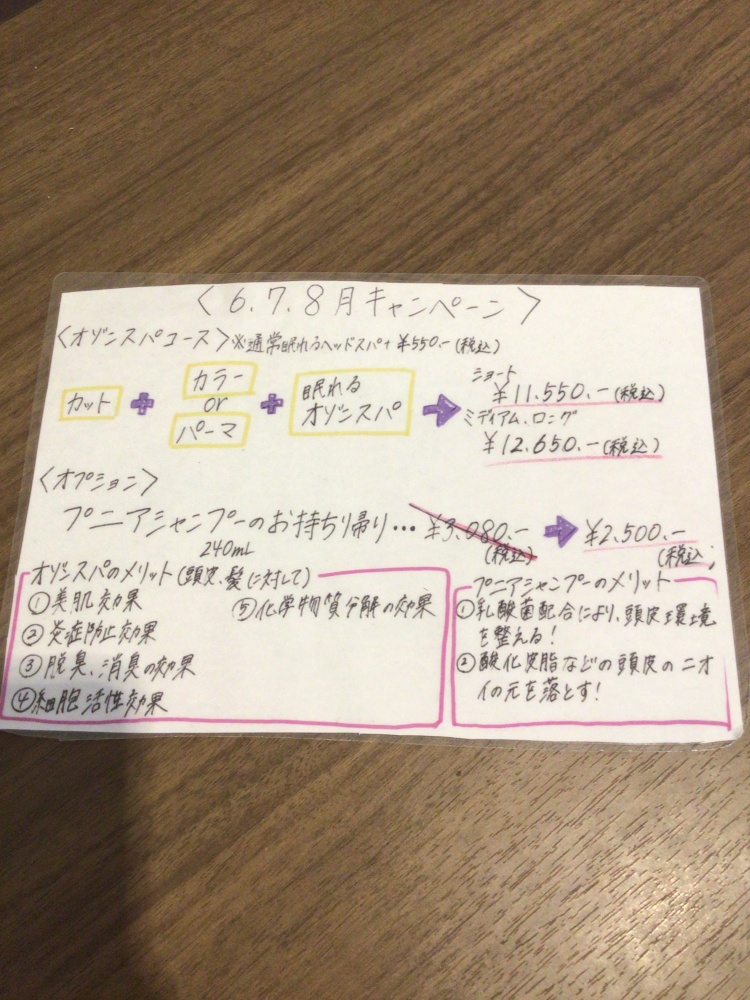 〈6.7.8月キャンペーン〉
〈オゾンスパコース〉※通常眠れるヘッドスパ+¥550.-(税込)
カット + カラー or パーマ + 眠れるオゾンスパ →
ショート
¥11.550.-(税込)
ミディアム、ロング
¥12.650.-(税込)
〈オプション〉
プニアシャンプーのお持ち帰り… ¥3.080.-(税込) → ¥2.500.-(税込)
240mL
オゾンスパのメリット(頭皮、髪に対して)
①美肌効果
②炎症防止効果
③脱臭、消臭の効果
④細胞活性効果
⑤化学物質分解の効果
プニアシャンプーのメリット
①乳酸菌配合により、頭皮環境
を整える!
②酸化皮脂などの頭皮のニオ
イの元を落とす!